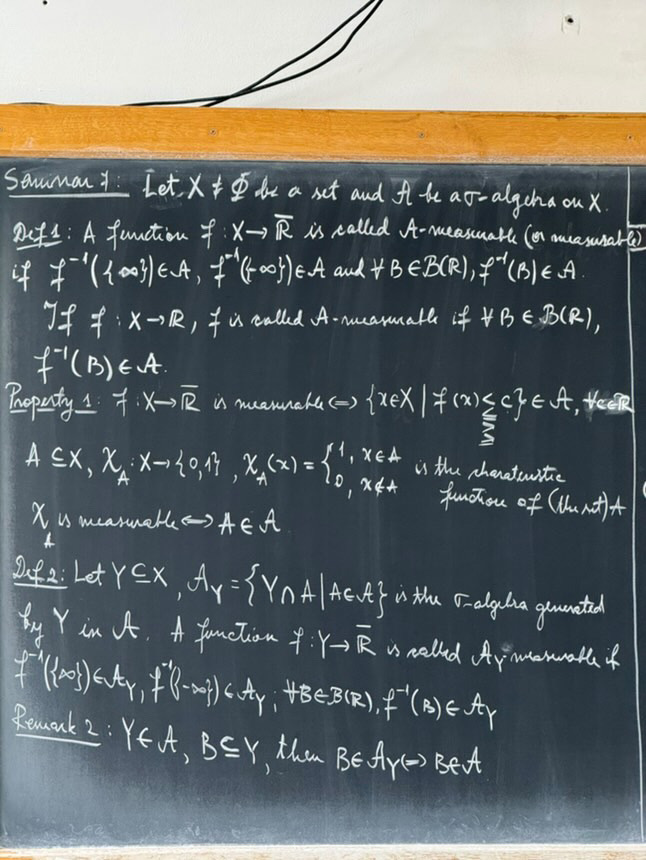 Seminar 7: Let X ≠ Φ be a set and A be a σ-algebra on X.
Def 1: A function f: X → R̅ is called A-measurable (or measurable)
if f⁻¹({∞}) ∈ A, f⁻¹({-∞}) ∈ A and ∀ B ∈ B(R), f⁻¹(B) ∈ A.
If f: X → R, f is called A-measurable if ∀ B ∈ B(R),
f⁻¹(B) ∈ A.
Property 1: f: X → R̅ is measurable ⇔ {x∈X | f(x) ≤ c} ∈ A, ∀c∈R
<
≥
>
A ⊆ X, χ_A: X → {0,1}, χ_A(x) = { 1, x∈A
0, x∉A
is the charateristic
function of (the set) A
χ_A is measurable ⇔ A ∈ A
Def 2: Let Y ⊆ X, A_Y = {Y ∩ A | A ∈ A} is the σ-algebra generated
by Y in A. A function f: Y → R̅ is called A_Y measurable if
f⁻¹({∞}) ∈ A_Y, f⁻¹({-∞}) ∈ A_Y; ∀B∈B(R), f⁻¹(B) ∈ A_Y
Remark 2: Y ∈ A, B ⊆ Y, then B ∈ A_Y ⇔ B ∈ A